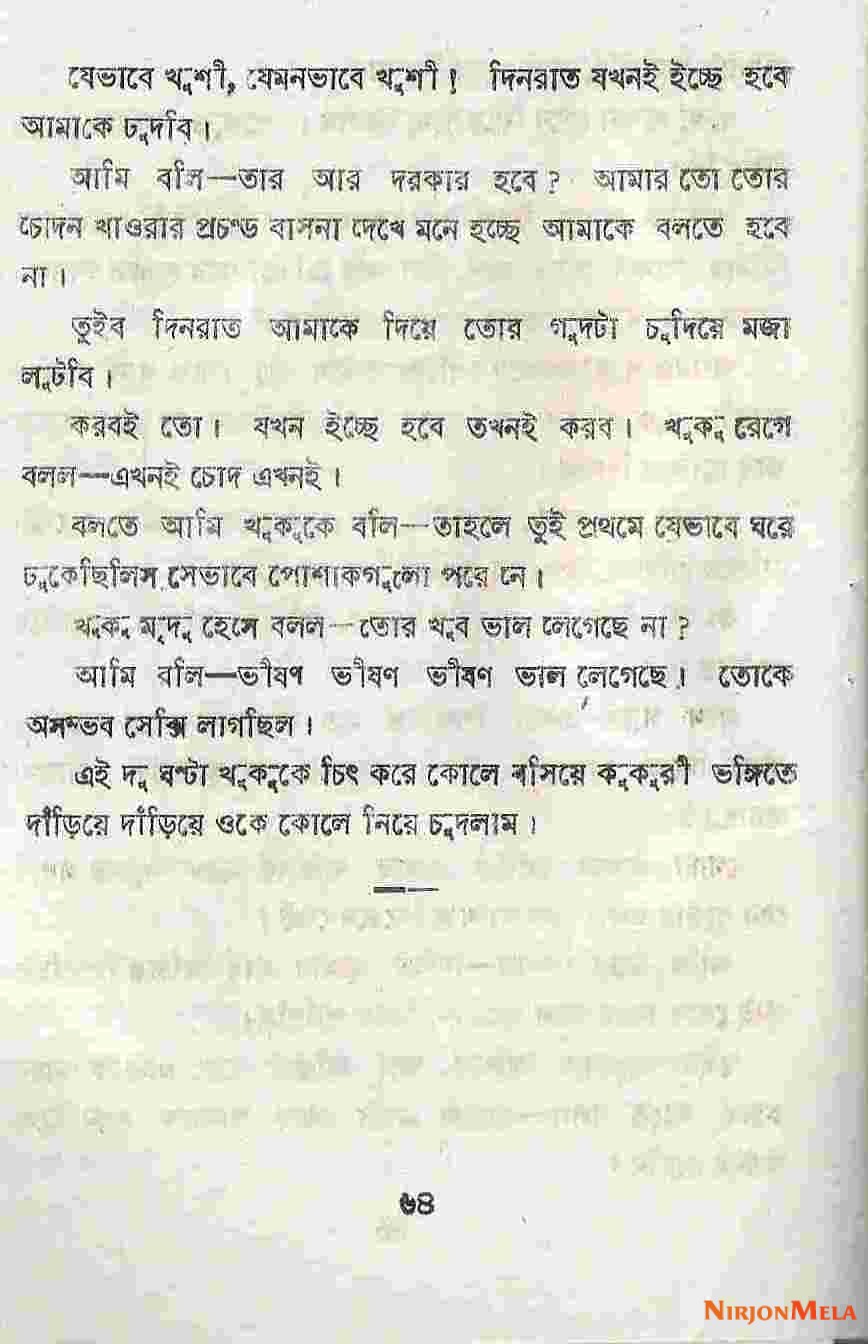 যেভাবে খুশী, যেমনভাবে খুশী! দিনরাত যখনই ইচ্ছে হবে
আমাকে চুদবি।
আমি বলি—তার আর দরকার হবে? আমার তো তোর
চোদন খাওরার প্রচণ্ড বাসনা দেখে মনে হচ্ছে আমাকে বলতে হবে
না।
তুইব দিনরাত আমাকে দিয়ে তোর গুদটা চুদিয়ে মজা
লুটবি।
করবই তো। যখন ইচ্ছে হবে তখনই করব। খুকু রেগে
বলল—এখনই চোদ এখনই।
বলতে আমি খুকুকে বলি—তাহলে তুই প্রথমে যেভাবে ঘরে
ঢুকেছিলিস সেভাবে পোশাকগুলো পরে নে।
খুকু মৃদু হেসে বলল—তোর খুব ভাল লেগেছে না?
আমি বলি—ভীষণ ভীষণ ভীষণ ভাল লেগেছে। তোকে
অসম্ভব সেক্সি লাগছিল।
এই দু ঘণ্টা খুকুকে চিৎ করে কোলে বসিয়ে কুকুরী ভঙ্গিতে
দাঁড়িয়ে দাঁড়িয়ে ওকে কোলে নিয়ে চুদলাম।
৬৪
NIRJONMELA